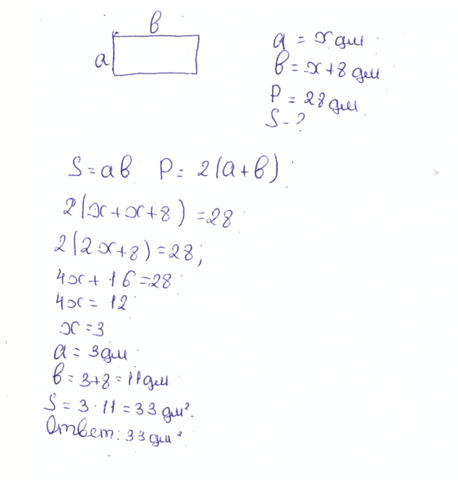 в
a
a = x дм
в = x+8 дм
P = 28 дм
S - ?
S = aв P = 2(a+в)
2(x+x+8) = 28
2(2x+8) = 28;
4x + 16 = 28
4x = 12
x = 3
a = 3 дм
в = 3+8 = 11 дм
S = 3 · 11 = 33 дм².
Ответ: 33 дм²